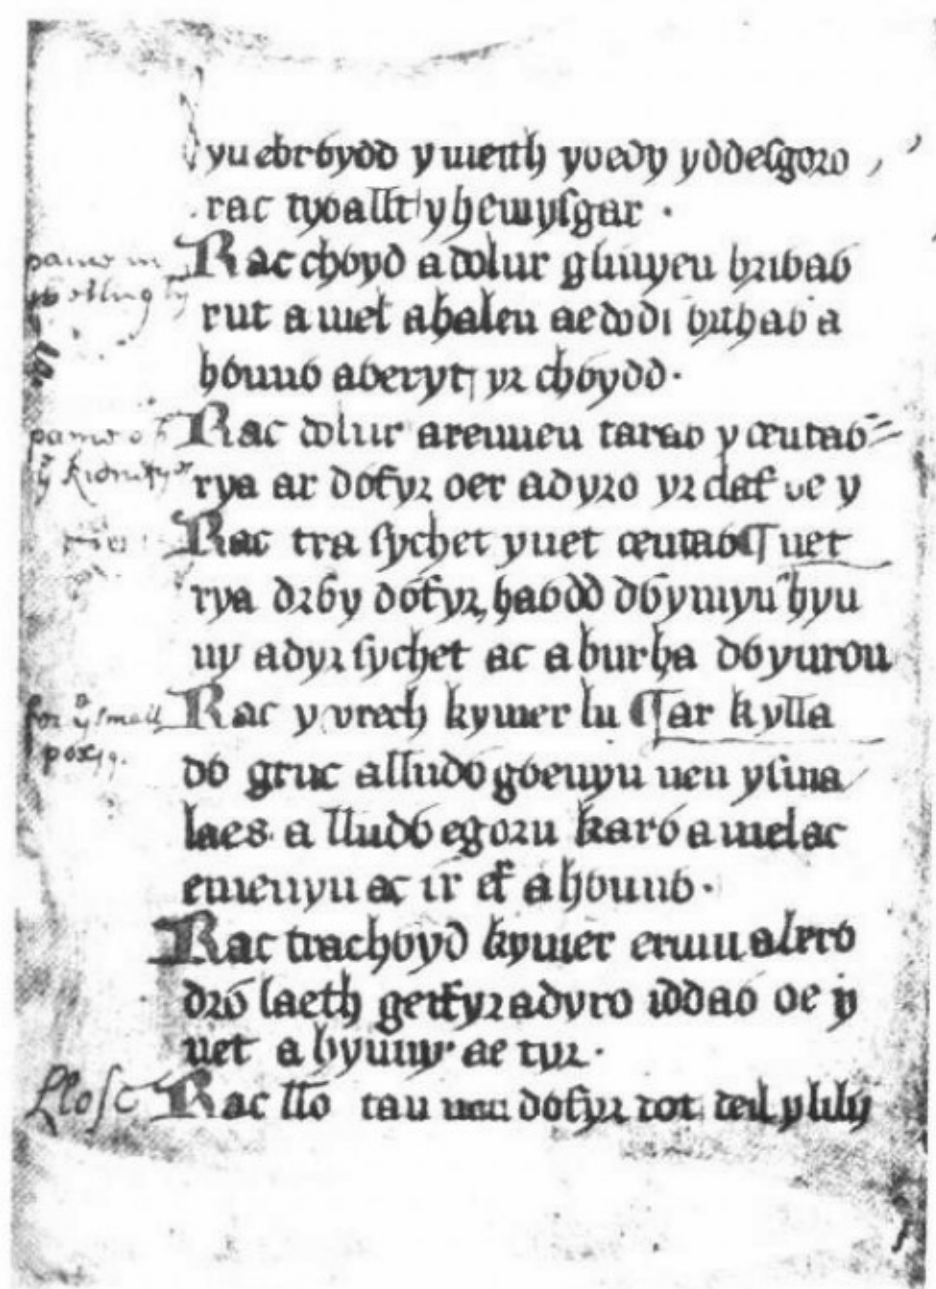 yn ebrỽydd y meith yoedy yddesgoro
rac tywallt y hemysgar .
Rac chỽyd a dolur glinyeu briwaỽ
rut a mel a halen ae dodi ỽrthaỽ a
hỽnnỽ aweryt yr chỽydd .
Rac dolur arenneu taraỽ y centaỽ=
rya ar dỽfyr oer a dyro yr claf oe y
Rac tra sychet yuet centaỽ ¶ uet
rya drỽy dỽfyr, haỽdd dỽymyn hyn
ny a dyr sychet ac a burha dỽyuron
Rac y vrech kymer lu ¶ ar kylla
dỽ gruc a lludỽ gỽenyn neu
laes a lludỽ egorn karỽ a mel ac
emenyn ac ir ef a hỽnnỽ .
Rac trachỽyd kymer
drỽ laeth geifyr a dyro iddaỽ oe y
uet a byỽ ae tyr .
Rac llo dỽfyr dot
paine in
paine of
y kidneyes
for y small
pox
Llosc